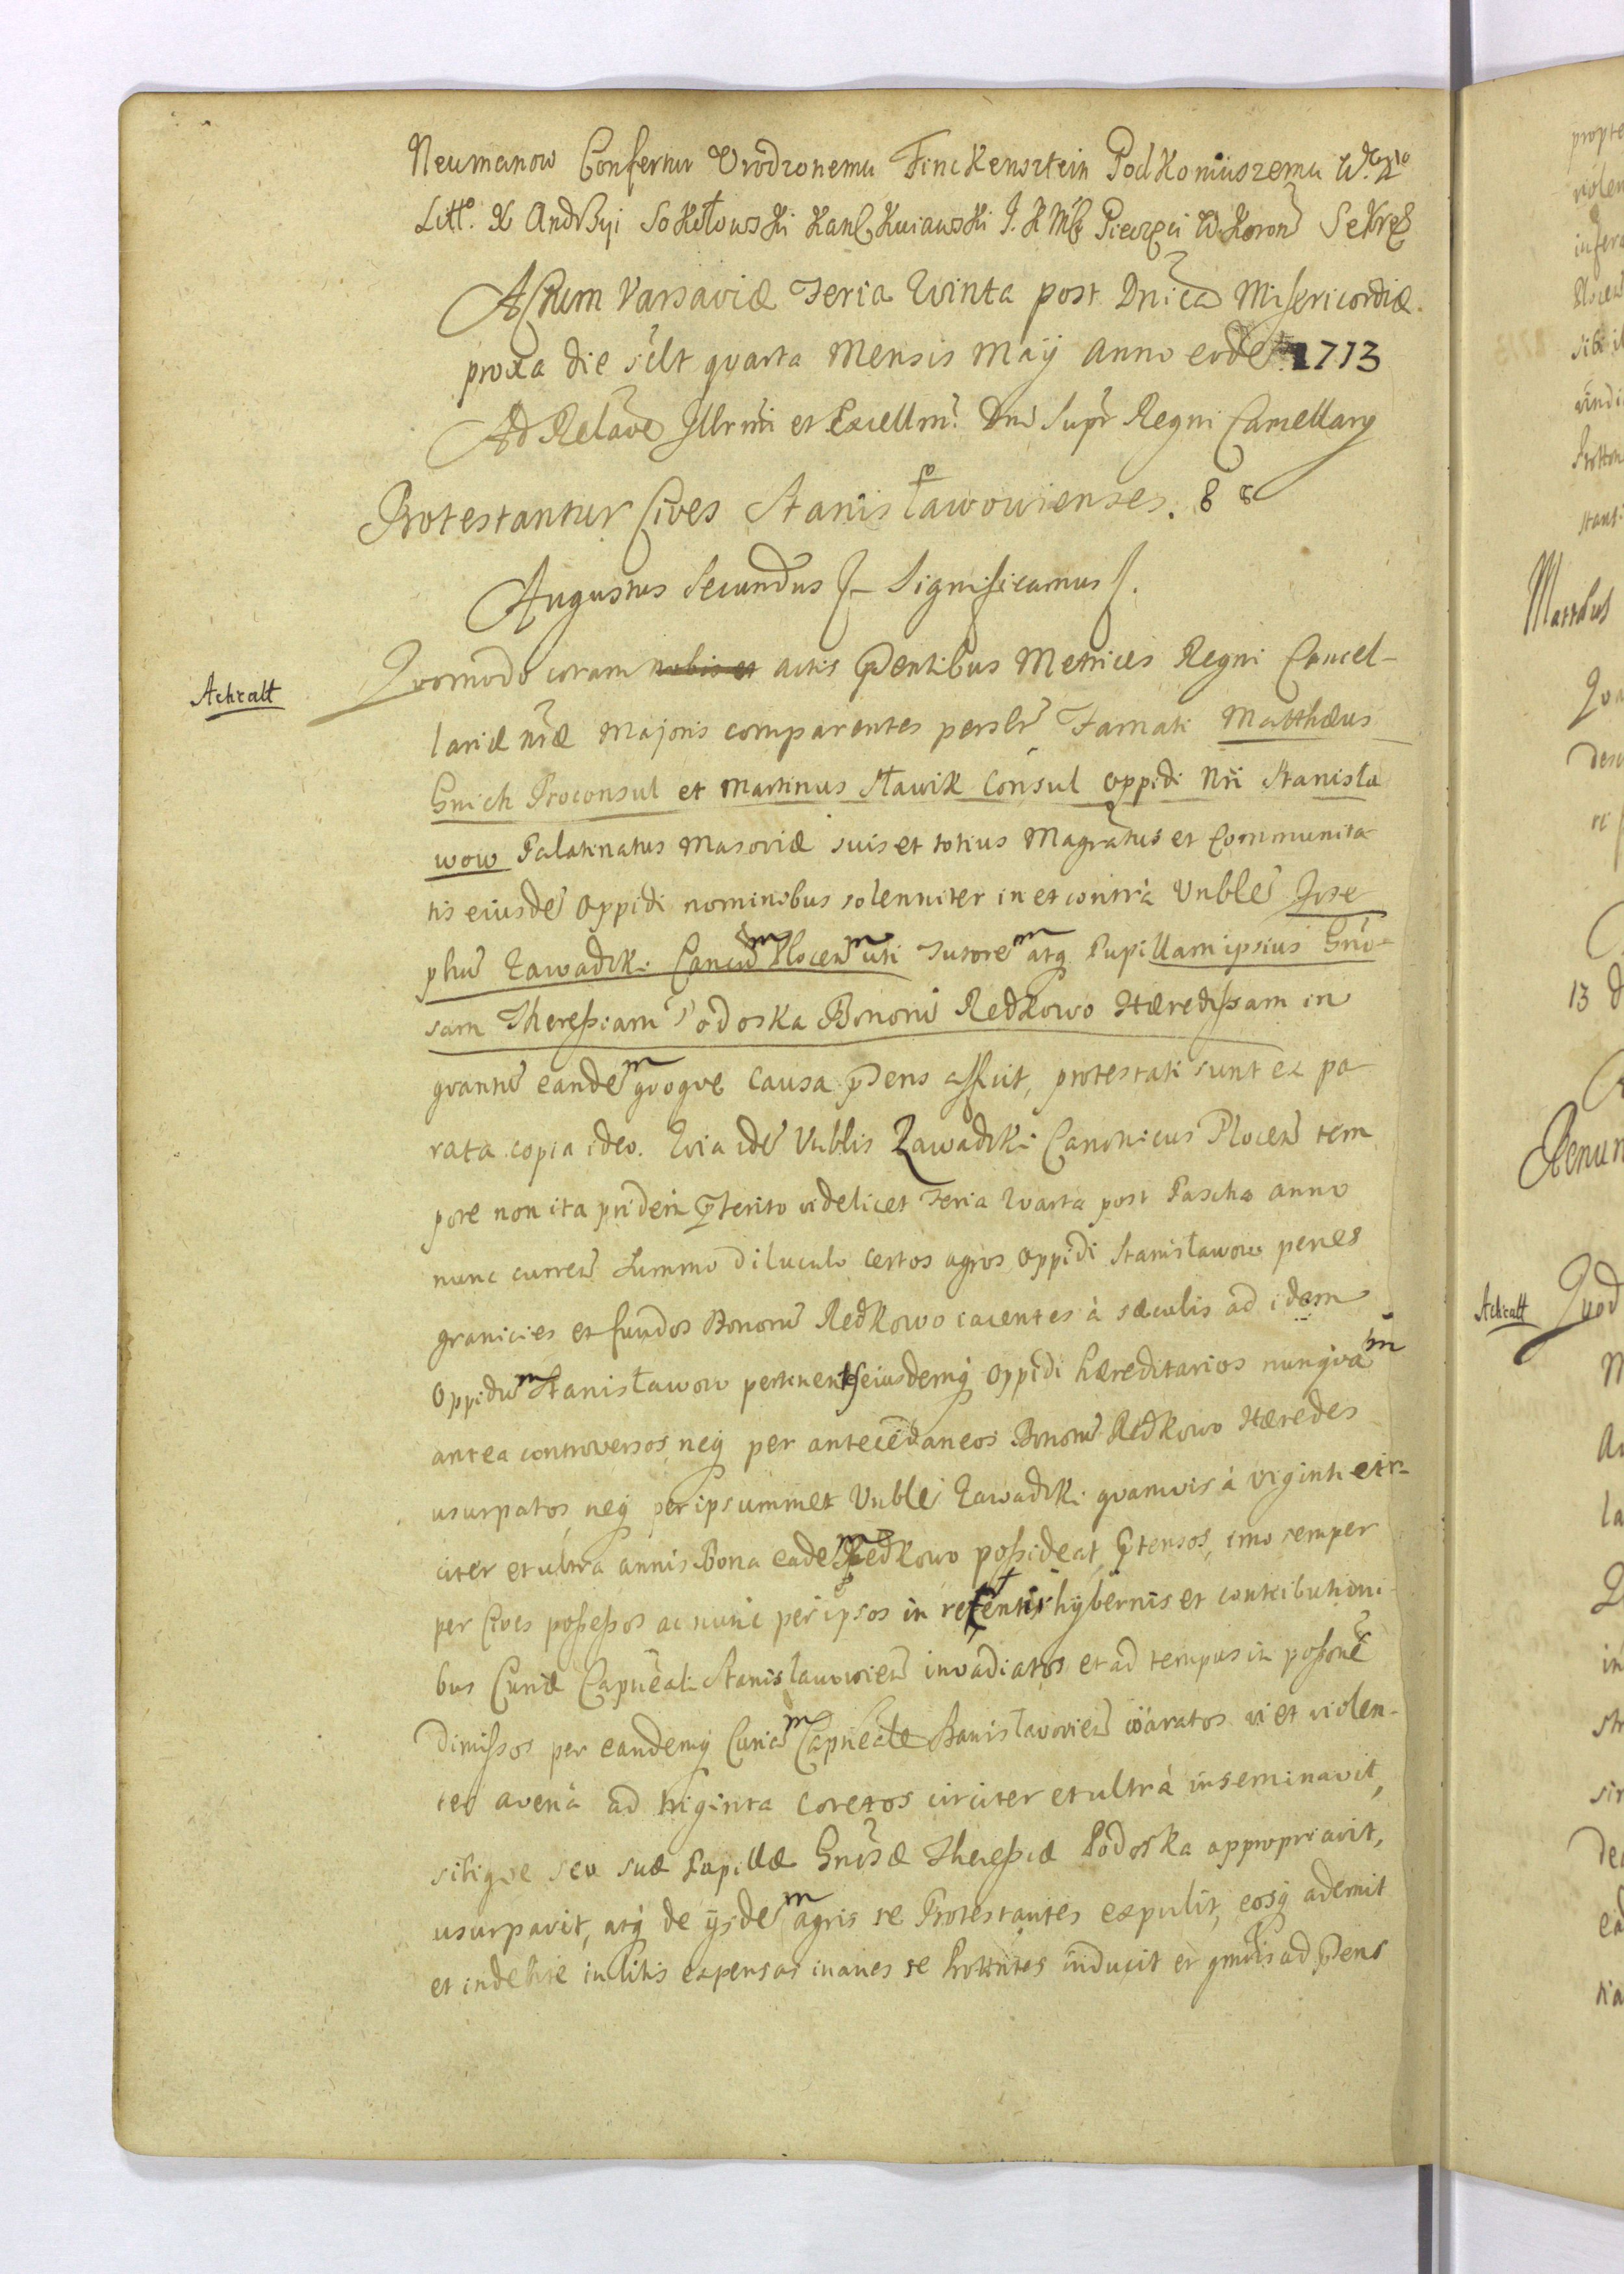 Neumanow Confertur Vrodzonemu Finckensztein Podkoniuszemu W. Xo
Litto. X Andrzyi Sokołowski Kanc Kuiawski J. K Mci Pieczęci W. Koron Sekret
Actum Varsaviæ Feria Qvinta post Dnicã Misericordiæ
proxa die scilt qvarta Mensis Maÿ Anno eode 1713
Ad Relãõe Illrmi et Excellmi Dni Supr Regni Cancellary
Protestantur Cives Stanisławowienses. 88
Augustus Secundus Significamus
Achtatt
Qvomodo coram nobis et actis pdentibus Metrices Regni Cancel-
lariæ nræ Majoris comparentes persltr Famati Matthæus
Gnich Proconsul et Martinus Sławik Consul oppidi Nri Stanisła
wow Palatinatus Masoviæ suis et totius Magratus et Communita
tis eiusde oppidi nominibus solenniter in et contrà Vnble Jose
phu Zawadzki Cancu Plocen uti Tutorem atq Pupillam ipsius Gno-
sam Theressiam Podoska Bonoru Redkowo Hæredissam in
qvantu eandem qvoqve causa pdens afficit, protestati sunt ex pa
rata copia ideo. Qvia ide Vnblis Zawadzki Canonicus Plocen tem
pore non ita pridem pterito videlicet Feria Qvarta post Pascha anno
nunc curren Summo diluculo certos agros oppidi Stanisławow penes
granicies et fundos Bonoru Redkowo iacentes à sæculis ad idem
oppidum Stanisławow pertinentes eiusdemq oppidi hæreditarios nunqvam
antea controversos neq per antecedaneos Bonoru Redkowo Hæredes
usurpatos, neq per ipsummet Vnble Zawadzki qvamvis à viginti cir-
citer et ultra annis Bona eadem Redkowo possideat, ptensos, imo semper
per Cives possessos ac nunc per ipsos in retentis hybernis et contributioni-
bus Curiæ Capneali Stanisławowien invadiatos et ad tempus in possone
dimissos per eandemq Curiam Capneale Stanisławovien exaratos vi et violen-
ter avenâ ad triginta coretos circiter et ultrà inseminavit,
sibiqve seu suæ Pupillæ Gnosæ Theressiæ Podoska appropriavit,
usurpavit, atq de ijsdem agris se Protestantes expulit, eosq ademit
et indebite in litis expensas inanes se Prottntes inducit et gnralis ad pdens